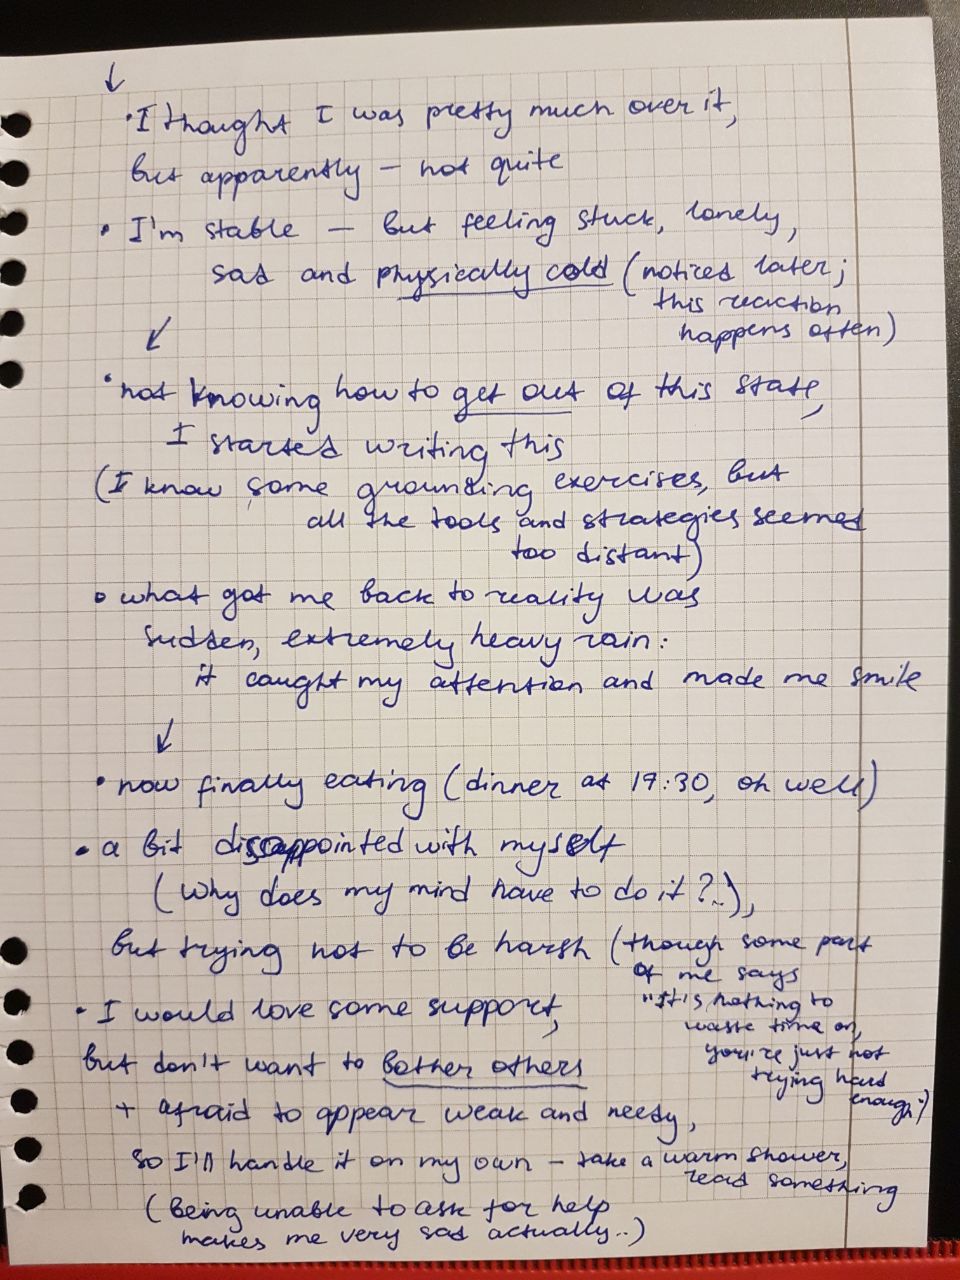 ↓
• I thought I was pretty much over it,
but apparently – not quite
• I'm stable – but feeling stuck, lonely,
sad and physically cold (noticed later;
this reaction
happens often)
↙
• not knowing how to get out of this state,
I started writing this
(I know some grounding exercises, but
all the tools and strategies seemed
too distant)
• what got me back to reality was
sudden, extremely heavy rain:
it caught my attention and made me smile
↓
• now finally eating (dinner at 19:30, oh well)
• a bit disappointed with myself
(Why does my mind have to do it?..),
but trying not to be harsh (though some part
of me says
"It's nothing to
waste time on,
you're just not
trying hard
enough")
• I would love some support,
but don't want to bother others
+ afraid to appear weak and needy,
so I'll handle it on my own – take a warm shower,
read something
(Being unable to ask for help
makes me very sad actually..)